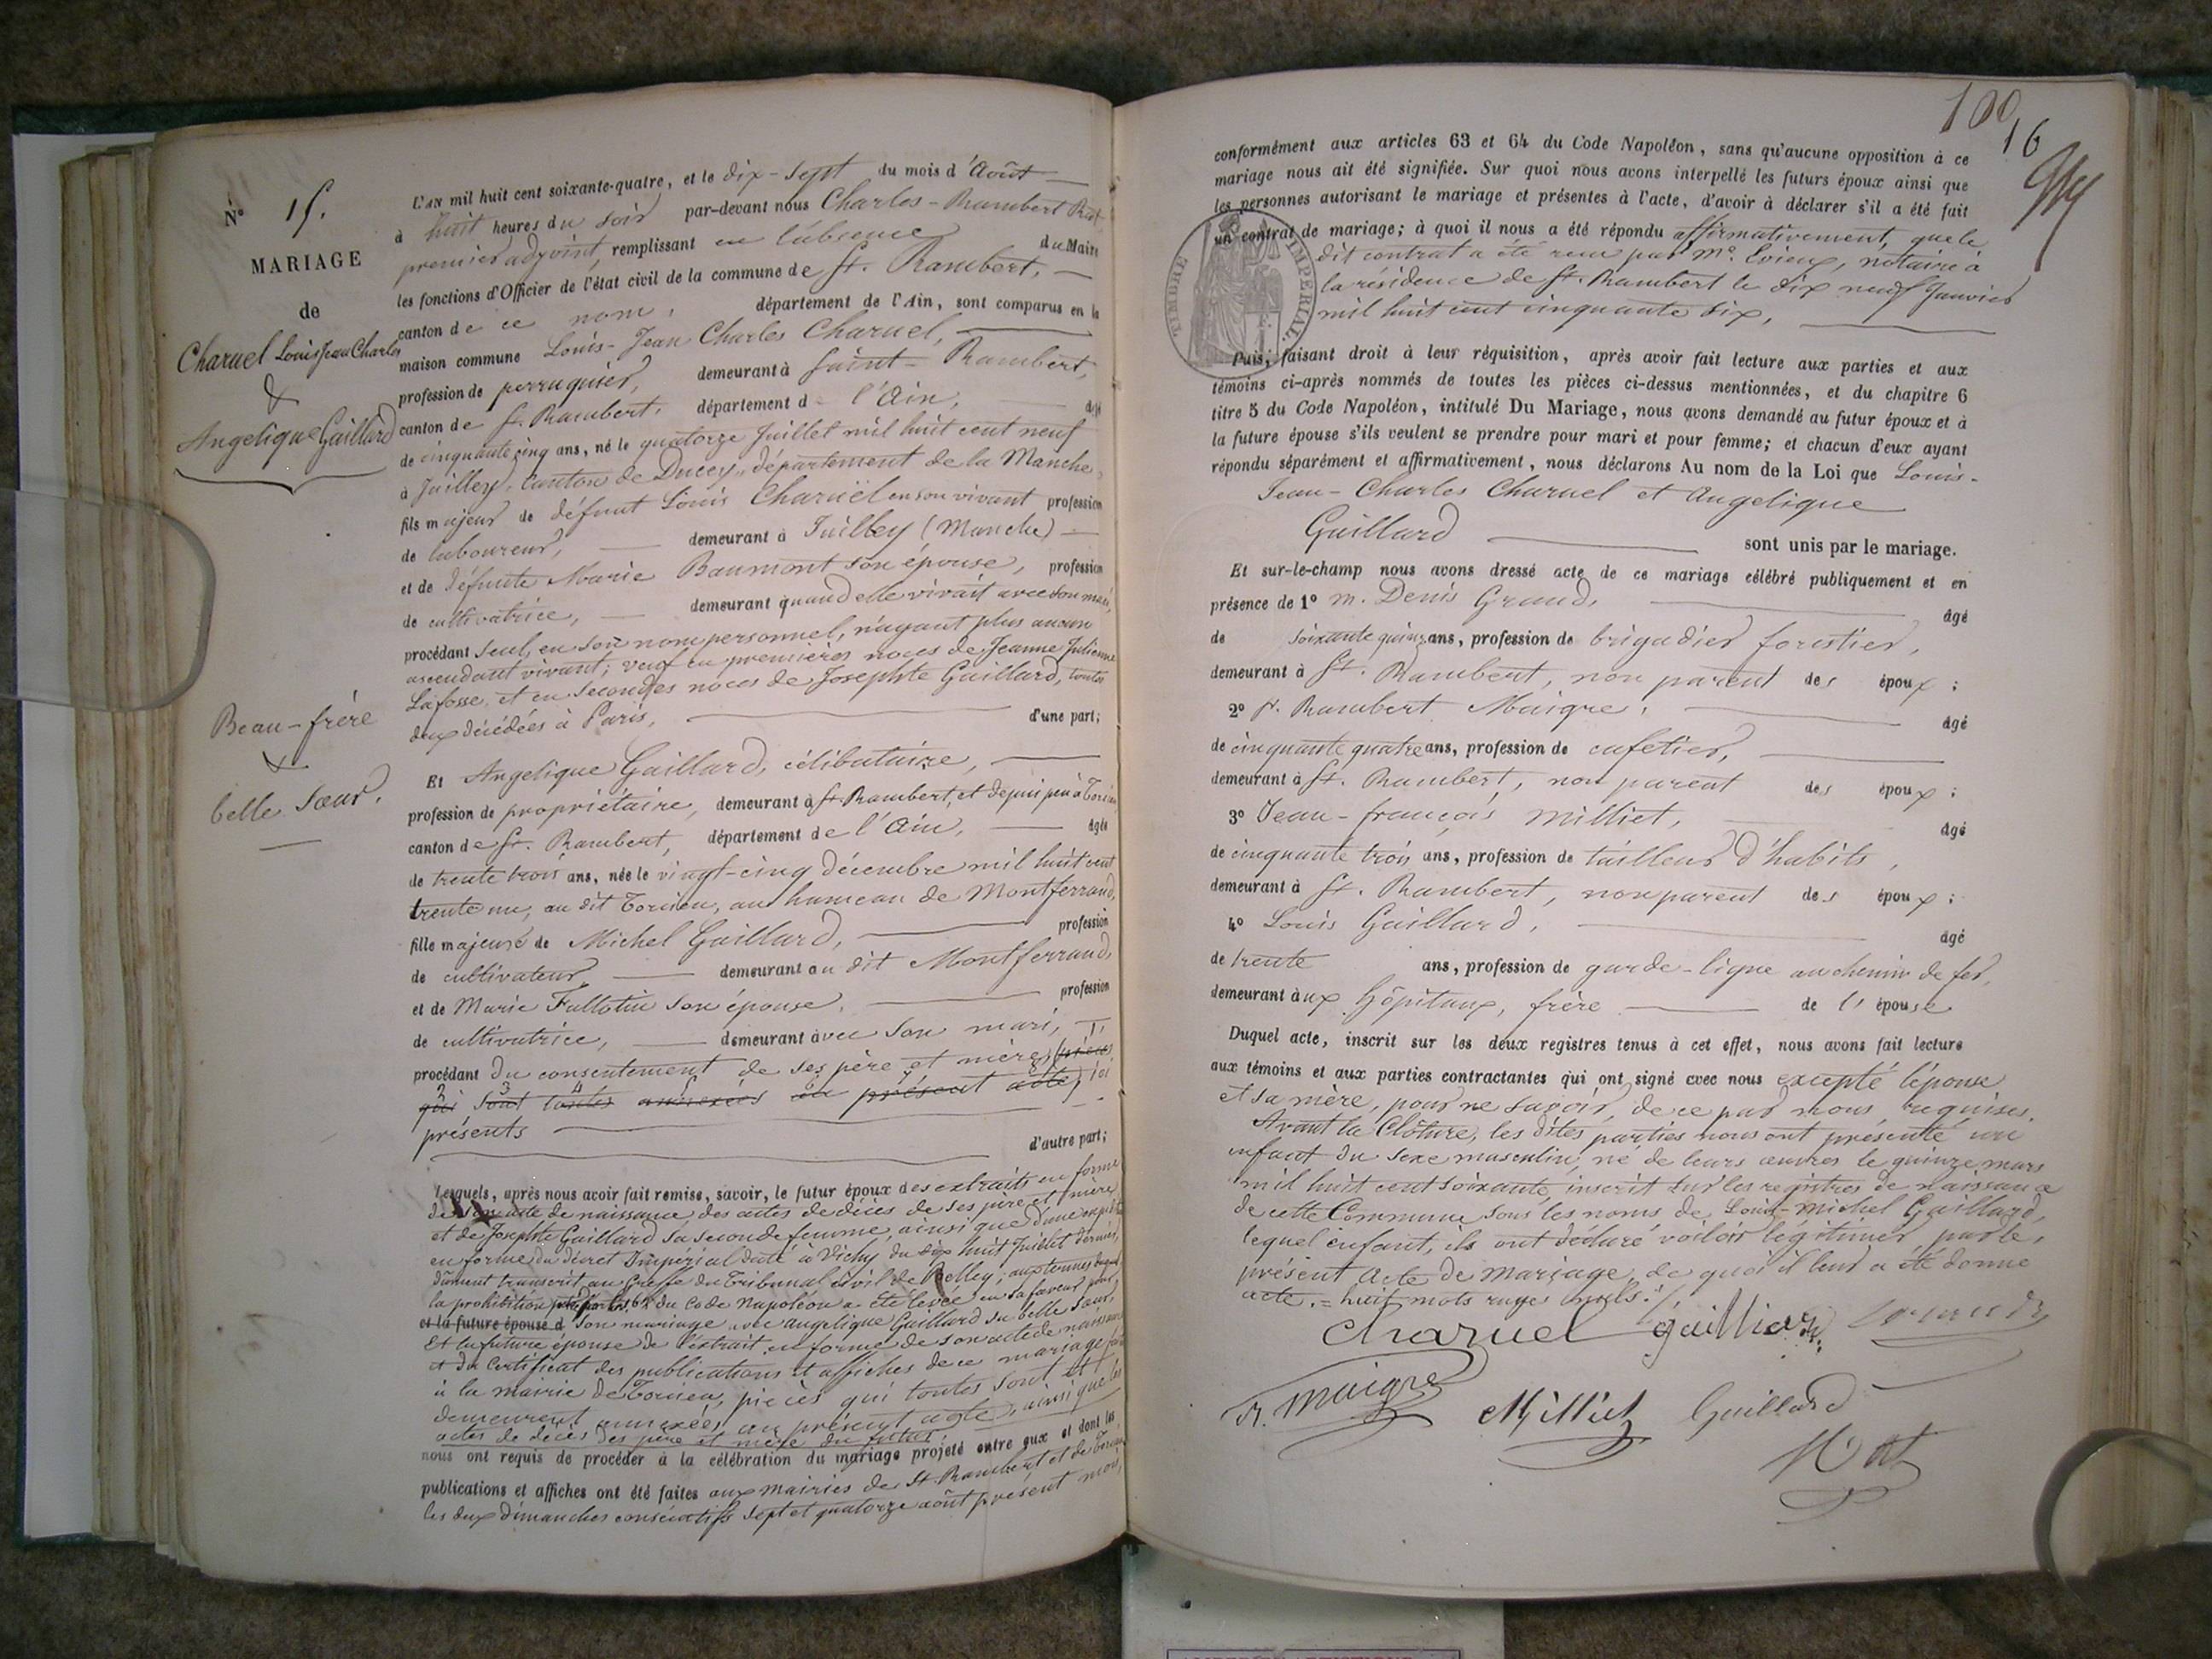 N° 15.
MARIAGE
de
Charuel Louis Jean Charles
&
Angelique Gaillard
Beau-frère
&
belle Sœur.
L'AN mil huit cent soixante-quatre, et le dix-sept du mois d'Août
à huit heures du soir par-devant nous Charles-Rambert Rat
premier adjoint, remplissant en l'absence du Maire
les fonctions d'Officier de l'état civil de la commune de St. Rambert,
canton de ce nom, département de l'Ain, sont comparus en la
maison commune Louis-Jean Charles Charuel,
profession de perruquier, demeurant à Saint-Rambert,
canton de St. Rambert, département d l'Ain, âgé
de cinquante cinq ans, né le quatorze Juillet mil huit cent neuf
à Juilley, canton de Ducey, département de la Manche,
fils majeur de défunt Louis Charuël en son vivant profession
de laboureur, demeurant à Juilley (Manche)
et de défunte Marie Baumont son épouse, profession
de cultivatrice, demeurant quand elle vivait avec son mari,
procédant seul, en son nom personnel, n'ayant plus aucun
ascendant vivant; veuf en premières noces de Jeanne Julienne
Lafosse, et en secondes noces de Josephte Gaillard, toutes
deux décédées à Paris, d'une part;
Et Angelique Gaillard, célibataire,
profession de propriétaire, demeurant à St. Rambert, et depuis peu à Torcieu
canton de St. Rambert, département de l'Ain, âgée
de trente trois ans, née le vingt-cinq décembre mil huit cent
trente un, au dit Torcieu, au hameau de Montferrand,
fille majeure de Michel Gaillard, profession
de cultivateur, demeurant au dit Montferrand,
et de Marie Fullotin son épouse, profession
de cultivatrice, demeurant avec son mari,
procédant du consentement de ses père et mère, pièces
qui sont toutes annexées au présent acte, ici
présents
d'autre part;
Lesquels, après nous avoir fait remise, savoir, le futur époux des extraits en forme
de son acte de naissance des actes de décès de ses père et mère
et de Josephte Gaillard sa seconde femme, ainsi que d'une expédition
en forme du décret Impérial daté à Vichy du dix huit Juillet dernier,
dûment transcrit au Greffe du Tribunal civil de Belley; aux termes duquel
la prohibition du Code Napoléon a été levée en sa faveur pour
et la future épouse d son mariage avec Angelique Gaillard sa belle sœur,
Et la future épouse de l'extrait en forme de son acte de naissance
et du Certificat des publications et affiches de ce mariage
à la mairie de Torcieu, pièces qui toutes sont et
demeurent annexées au présent acte, ainsi que les
actes de décès des père et mère du futur;
nous ont requis de procéder à la célébration du mariage projeté entre eux et dont les
publications et affiches ont été faites aux mairies de St. Rambert et de Torcieu
les deux dimanches consécutifs sept et quatorze août présent mois,
100
16
conformément aux articles 63 et 64 du Code Napoléon, sans qu'aucune opposition à ce
mariage nous ait été signifiée. Sur quoi nous avons interpellé les futurs époux ainsi que
les personnes autorisant le mariage et présentes à l'acte, d'avoir à déclarer s'il a été fait
un contrat de mariage; à quoi il nous a été répondu affirmativement, que le
dit contrat a été reçu par Me. Evieux, notaire à
la résidence de St. Rambert le dix neuf Janvier
mil huit cent cinquante dix,
TIMBRE IMPÉRIAL
Puis, faisant droit à leur réquisition, après avoir fait lecture aux parties et aux
témoins ci-après nommés de toutes les pièces ci-dessus mentionnées, et du chapitre 6
titre 5 du Code Napoléon, intitulé Du Mariage, nous avons demandé au futur époux et à
la future épouse s'ils veulent se prendre pour mari et pour femme; et chacun d'eux ayant
répondu séparément et affirmativement, nous déclarons Au nom de la Loi que Louis-
Jean-Charles Charuel et Angelique
Gaillard sont unis par le mariage.
Et sur-le-champ nous avons dressé acte de ce mariage célébré publiquement et en
présence de 1° M. Denis Grand, âgé
de soixante quinze ans, profession de brigadier forestier,
demeurant à St. Rambert, non parent des époux;
2° St. Rambert Maigre, âgé
de cinquante quatre ans, profession de cafetier,
demeurant à St. Rambert, non parent des époux;
3° Jean-françois Milliet, âgé
de cinquante trois ans, profession de tailleur d'habits,
demeurant à St. Rambert, non parent des époux;
4° Louis Gaillard, âgé
de trente ans, profession de garde-ligne au chemin de fer,
demeurant aux Hôpitaux, frère de l'épouse
Duquel acte, inscrit sur les deux registres tenus à cet effet, nous avons fait lecture
aux témoins et aux parties contractantes qui ont signé avec nous excepté l'épouse
et sa mère, pour ne savoir, de ce par nous requises.
Avant la Clôture, les dites parties nous ont présenté un
enfant du sexe masculin, né de leurs œuvres le quinze mars
mil huit cent soixante, inscrit sur les registres de naissance
de cette Commune sous les noms de Louis-Michel Gaillard,
lequel enfant, ils ont déclaré vouloir légitimer par le
présent acte de mariage, de quoi il leur a été donné
acte. = huit mots rayés nuls./.
Charuel gaillard
R. Maigre Milliet Gaillard
Rat